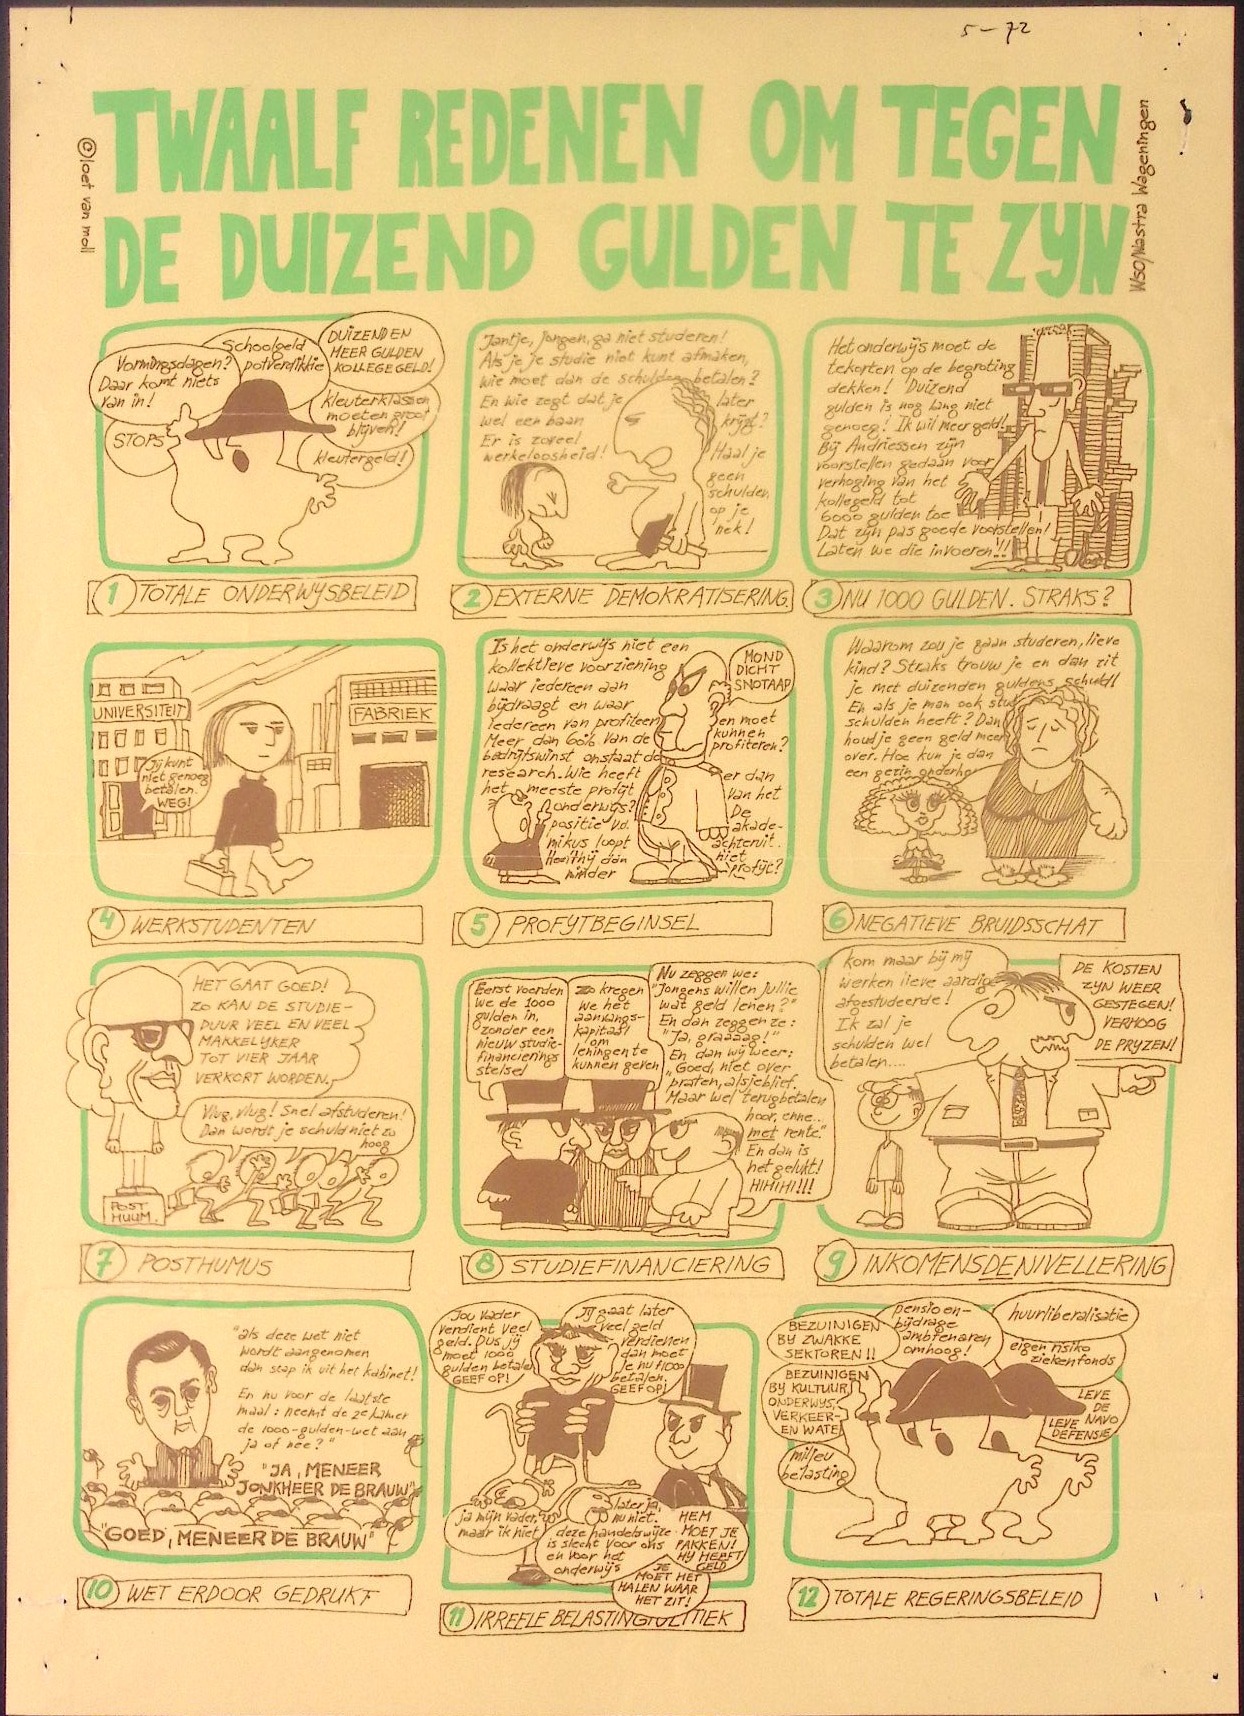 5-72
TWAALF REDENEN OM TEGEN
DE DUIZEND GULDEN TE ZYN
© loet van moll
WSO/Wastra Wageningen
Vormingsdagen?
Daar komt niets
van in!
Schoolgeld
potverdikkie
DUIZEND EN
MEER GULDEN
KOLLEGEGELD!
kleuterklassen
moeten groot
blijven!
STOPS
kleutergeld!
1 TOTALE ONDERWYSBELEID
Jantje, jongen, ga niet studeren!
Als je je studie niet kunt afmaken,
wie moet dan de schulden betalen?
En wie zegt dat je later
wel een baan krijgt?
Er is zoveel
werkeloosheid!
Haal je
geen
schulden
op je
nek!
2 EXTERNE DEMOKRATISERING
Het onderwijs moet de
tekorten op de begroting
dekken! Duizend
gulden is nog lang niet
genoeg! Ik wil meer geld!
Bij Andriessen zijn
voorstellen gedaan voor
verhoging van het
kollegeld tot
6000 gulden toe
Dat zijn pas goede voorstellen!
Laten we die invoeren!!!
3 NU 1000 GULDEN. STRAKS?
UNIVERSITEIT
FABRIEK
Jij kunt
niet genoeg
betalen.
WEG!
4 WERKSTUDENTEN
Is het onderwijs niet een
kollektieve voorziening
waar iedereen aan
bijdraagt en waar
iedereen van profiteer
en moet
kunnen
profiteren?
Meer dan 60% van de
bedrijfswinst onstaat do
er dan
research. Wie heeft
van het
het meeste profijt
onderwijs?
De
positie v.d.
akade-
mikus loopt
achteruit.
Heeft hij dan
niet
minder
profijt?
MOND
DICHT
SNOTAAP
5 PROFYTBEGINSEL
Waarom zou je gaan studeren, lieve
kind? Straks trouw je en dan zit
je met duizenden guldens schuld!
En als je man ook stu
schulden heeft? Dan
houd je geen geld meer
over. Hoe kun je dan
een gezin onderho
6 NEGATIEVE BRUIDSSCHAT
HET GAAT GOED!
ZO KAN DE STUDIE-
DUUR VEEL EN VEEL
MAKKELIJKER
TOT VIER JAAR
VERKORT WORDEN.
Vlug, vlug! Snel afstuderen!
Dan wordt je schuld niet zo
hoog
POST
HUUM.
7 POSTHUMUS
Eerst voerden
we de 1000
gulden in,
zonder een
nieuw studie-
financierings
stelsel
Zo kregen
we het
aanvangs-
kapitaal
om
leningen te
kunnen geven
Nu zeggen we:
"Jongens willen jullie
wat geld lenen?"
En dan zeggen ze:
"Ja, graaaag!"
En dan wij weer:
"Goed, niet over
praten, alsjeblief.
Maar wel terugbetalen
hoor, enne...
met rente."
En dan is
het gelukt!
HIHIHI!!!
8 STUDIEFINANCIERING
Kom maar bij mij
werken lieve aardige
afgestudeerde!
Ik zal je
schulden wel
betalen....
DE KOSTEN
ZYN WEER
GESTEGEN!
VERHOOG
DE PRYZEN!
9 INKOMENSDENIVELLERING
"als deze wet niet
wordt aangenomen
dan stap ik uit het kabinet!
En nu voor de laatste
maal: neemt de 2e kamer
de 1000-gulden-wet aan
ja of nee?"
"JA, MENEER
JONKHEER DE BRAUW"
"GOED, MENEER DE BRAUW"
10 WET ERDOOR GEDRUKT
Jou vader
verdient veel
geld. Dus jij
moet 1000
gulden betale
GEEF OP!
Jij gaat later
veel geld
verdienen
dan moet
je nu f1000
betalen.
GEEF OP!
ja mijn vader,
maar ik niet
later ja,
nu niet.
deze handelswijze
is slecht voor ons
en voor het
onderwijs
HEM
MOET JE
PAKKEN!
HY HEEFT
GELD
JE
MOET HET
HALEN WAAR
HET ZIT!
11 IRREELE BELASTINGPOLITIEK
BEZUINIGEN
BY ZWAKKE
SEKTOREN!!
pensioen-
bijdrage
ambtenaren
omhoog!
huurliberalisatie
eigen risiko
ziekenfonds
BEZUINIGEN
BY KULTUUR,
ONDERWYS,
VERKEER-
EN WATE
LEVE
DE
NAVO
LEVE
DEFENSIE
milieu
belasting
12 TOTALE REGERINGSBELEID